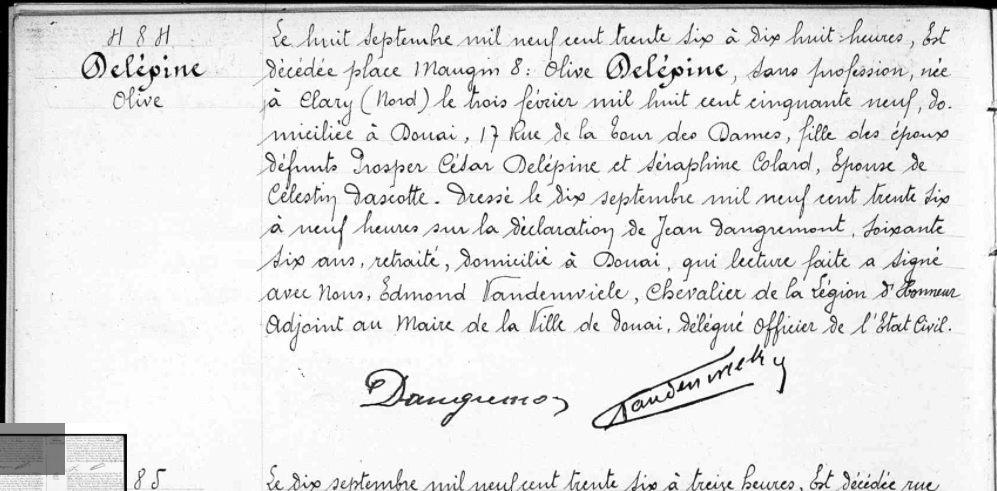 484
Delépine
Olive
Le huit septembre mil neuf cent trente six à dix huit heures, Est
décédée place Maugin 8: Olive Delépine, sans profession, née
à Clary (Nord) le trois février mil huit cent cinquante neuf, do-
miciliée à Douai, 17 Rue de la Cour des Dames, fille des époux
défunts Prosper César Delépine et Séraphine Colard, Epouse de
Célestin Dascotte. Dressé le dix septembre mil neuf cent trente six
à neuf heures sur la déclaration de Jean Dangremont, soixante
six ans, retraité, domicilié à Douai, qui lecture faite a signé
avec Nous, Edmond Vandenwiele, Chevalier de la Légion d'Honneur
Adjoint au Maire de la Ville de Douai, délégué Officier de l'Etat Civil.
85
Le dix septembre mil neuf cent trente six à treize heures, Est décédée rue